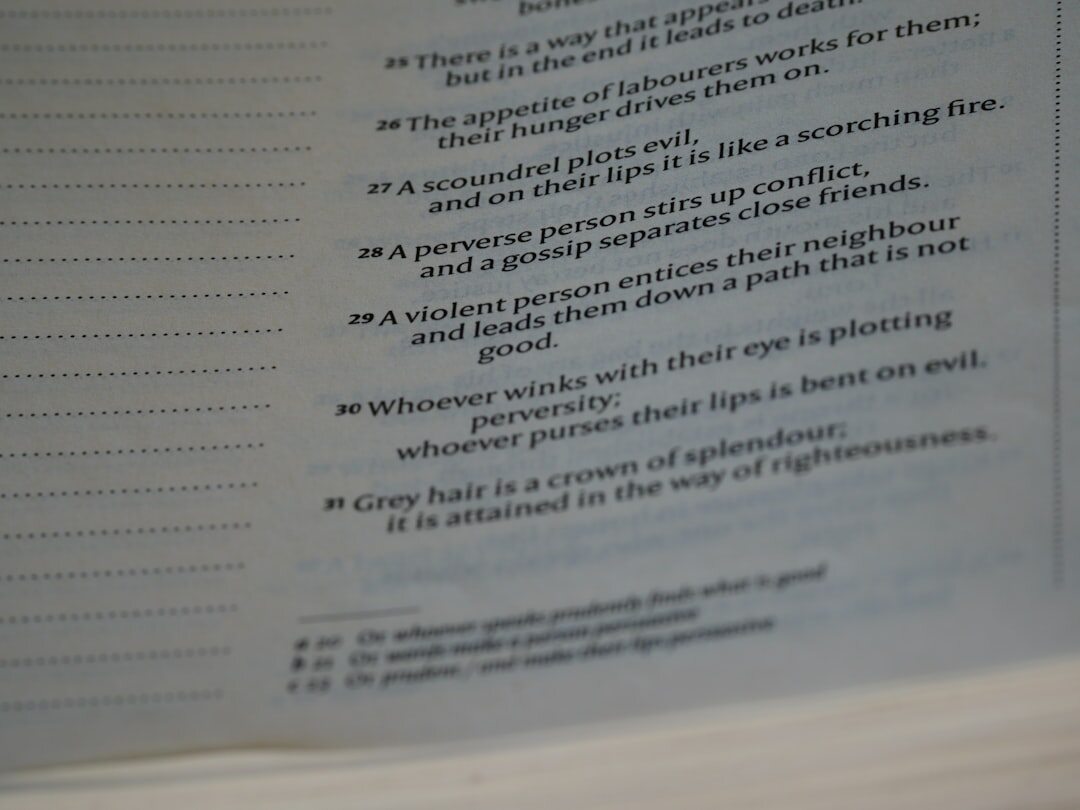 bones
25 There is a way that appears
but in the end it leads to death.
26 The appetite of labourers works for them;
their hunger drives them on.
27 A scoundrel plots evil,
and on their lips it is like a scorching fire.
28 A perverse person stirs up conflict,
and a gossip separates close friends.
29 A violent person entices their neighbour
and leads them down a path that is not
good.
30 Whoever winks with their eye is plotting
perversity;
whoever purses their lips is bent on evil.
31 Grey hair is a crown of splendour;
it is attained in the way of righteousness.
Or whoever speaks prudently finds what is good
Or words make a person persuasive
Or prudent / and make their lips persuasive